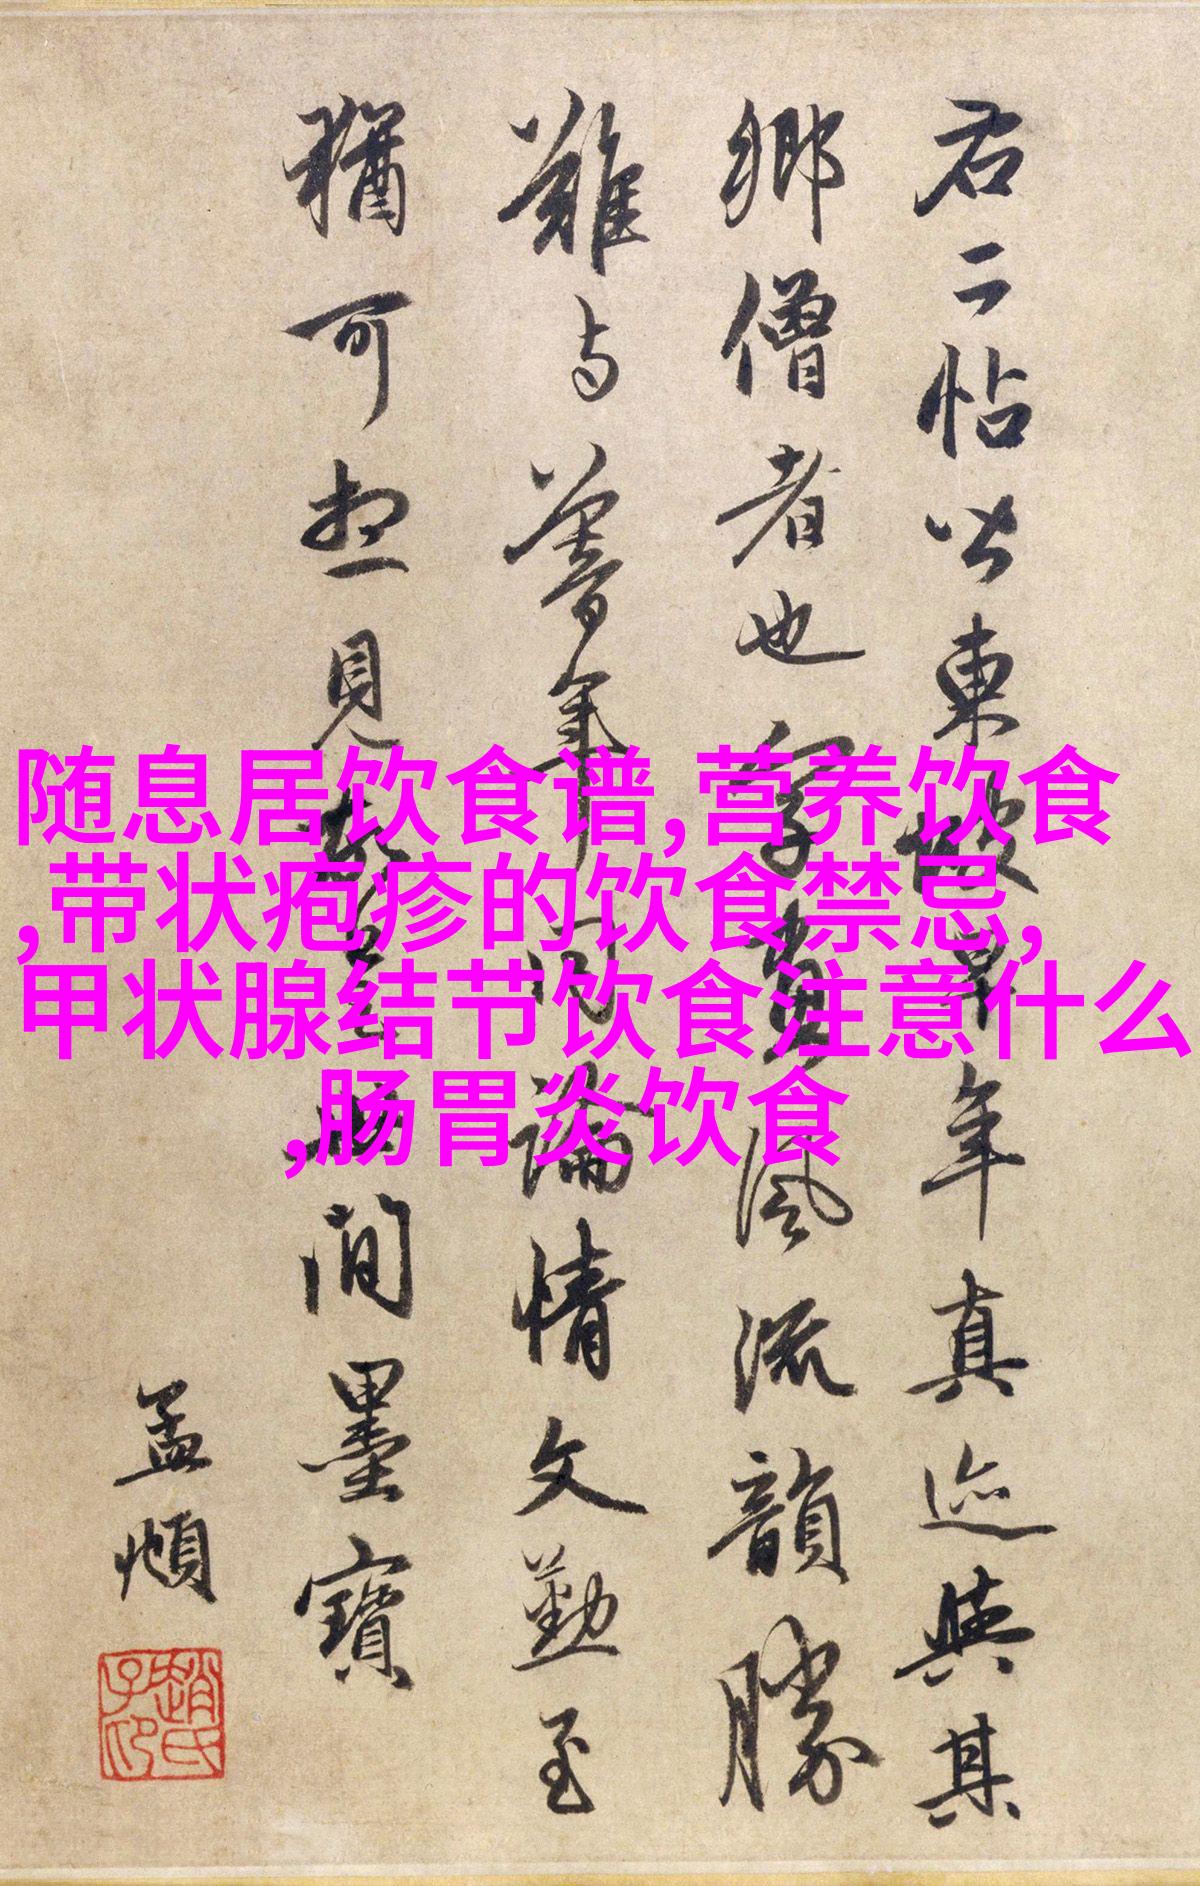 随息居饮食谱,营养饮食
,带状疱疹的饮食禁忌,
甲状腺结节饮食注意什么
,肠胃炎饮食
右二帖皆東坡早年真迹與其
鄉僧者也字畫風流韻勝
難与暮年同論情文勤至
猶可想見故是世間墨寶
孟頫
趙氏子昂